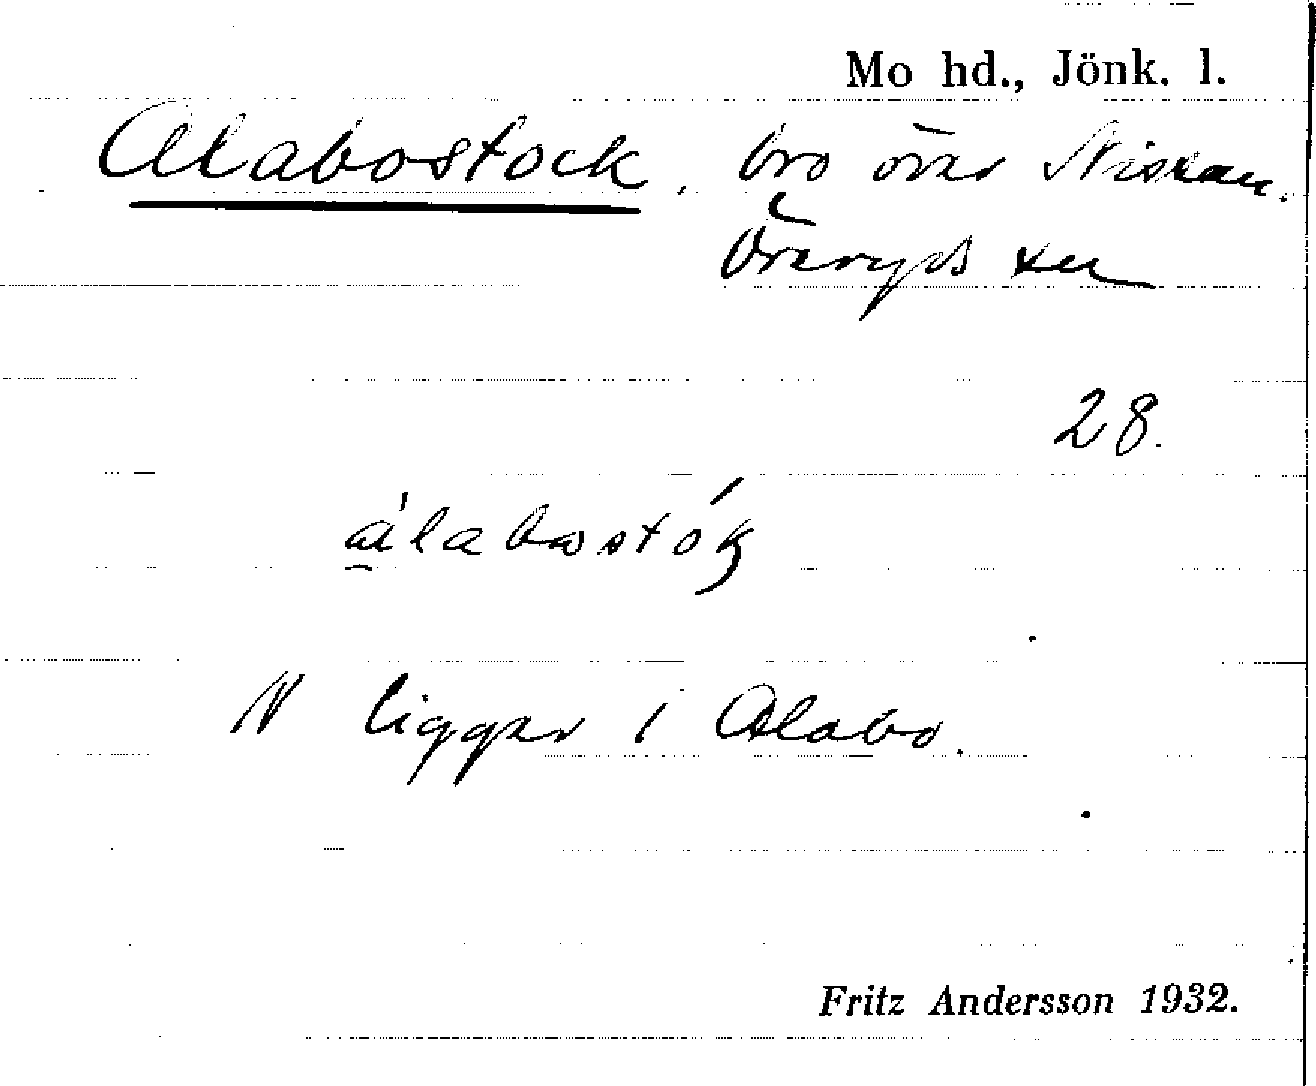 Mo hd., Jönk. l.
Alabostock, bro över Nissan.
Öreryds sn
28.
ligger i Alabo.
Fritz Andersson 1932.